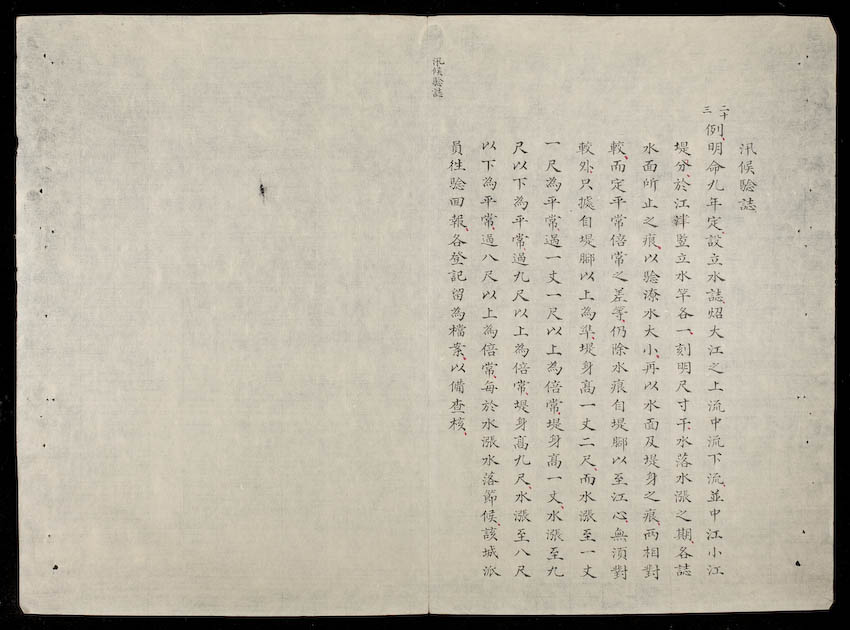 汛候騐誌
二十三
例、明命九年定、設立水誌、炤大江之上流中流下流、並中江小江
堤分、於江津竪立水竿各一、刻明尺寸、于水落水漲之期、各誌
水面所止之痕、以騐潦水大小、再以水面及堤身之痕、两相對
較、而定平常倍常之差等、仍除水痕自堤腳以至江心、無湏對
較外、只據自堤腳以上為準、堤身高一丈二尺、而水漲至一丈
一尺為平常、過一丈一尺以上為倍常、堤身高一丈、水漲至九
尺以下為平常、過九尺以上為倍常、堤身髙九尺、水漲至八尺
以下為平常、過八尺以上為倍常、每於水漲水落節候、該城派
員徃騐回報、各登記留為檔案、以備查核、
汛候騐誌